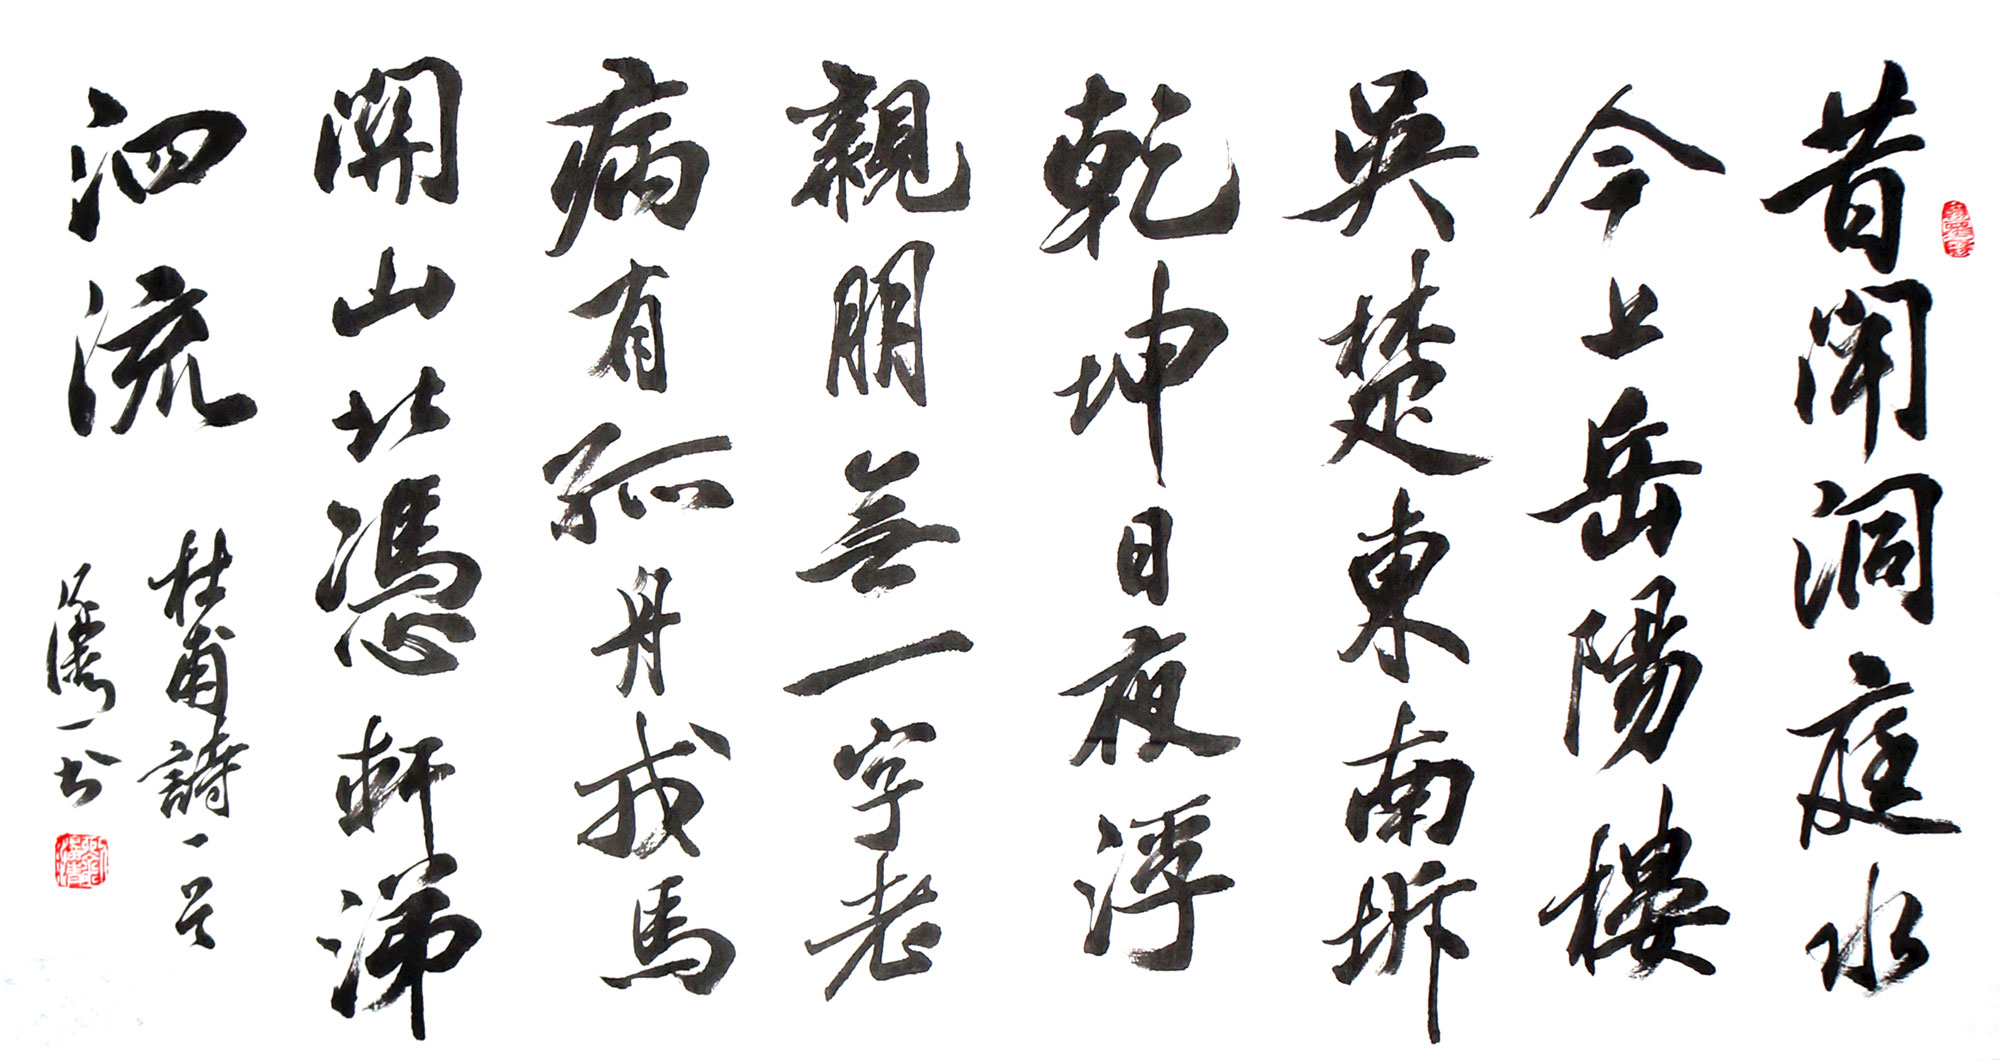 昔聞洞庭水
今上岳陽樓
吳楚東南坼
乾坤日夜浮
親朋無一字老
病有孤舟戎馬
關山北憑軒涕
泗流
杜甫詩一首
书